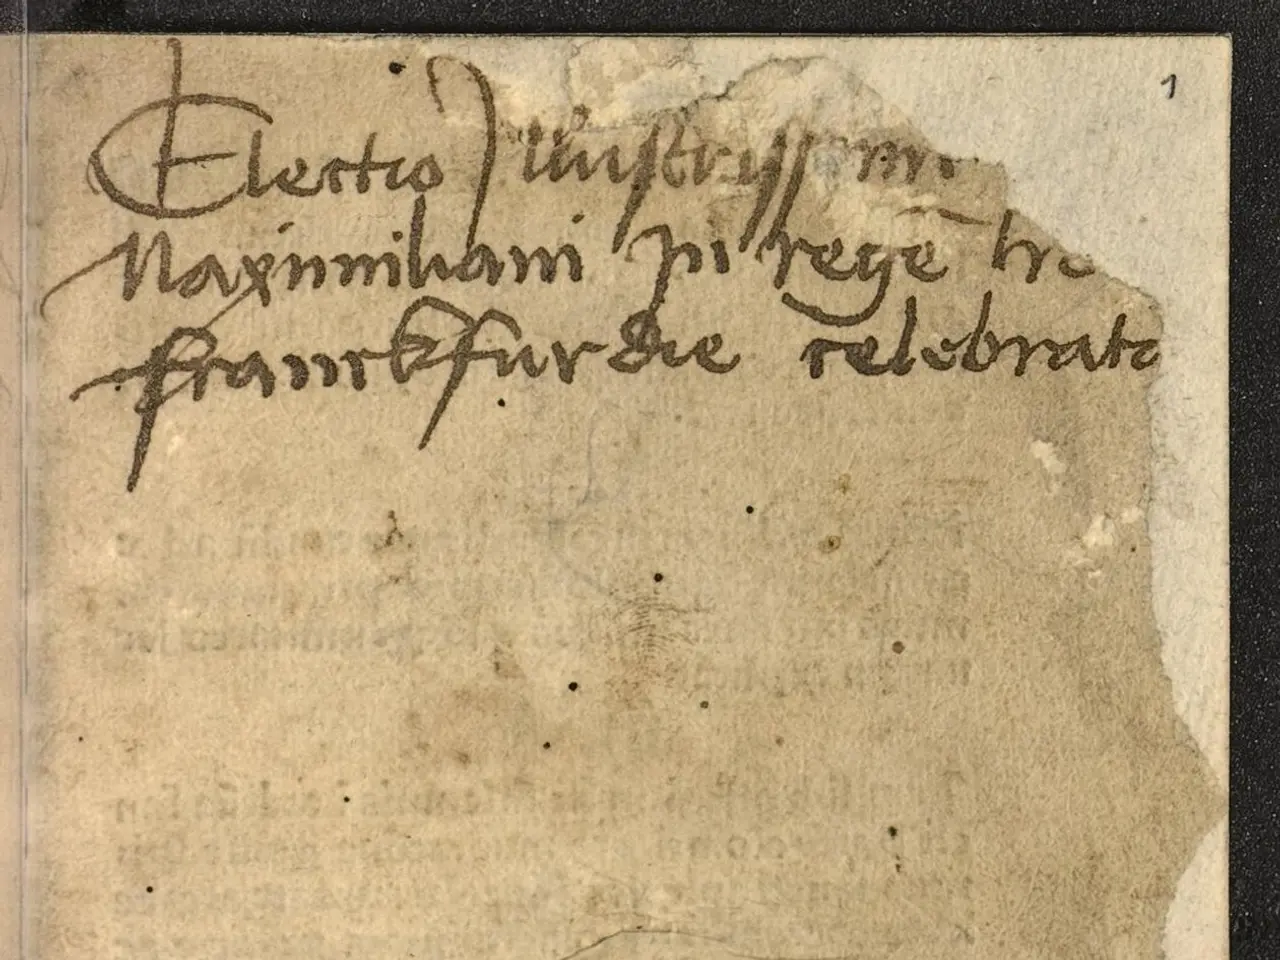 1
Electio Illustrissimi
Maximiliani In regē
franckfurdie celebrata